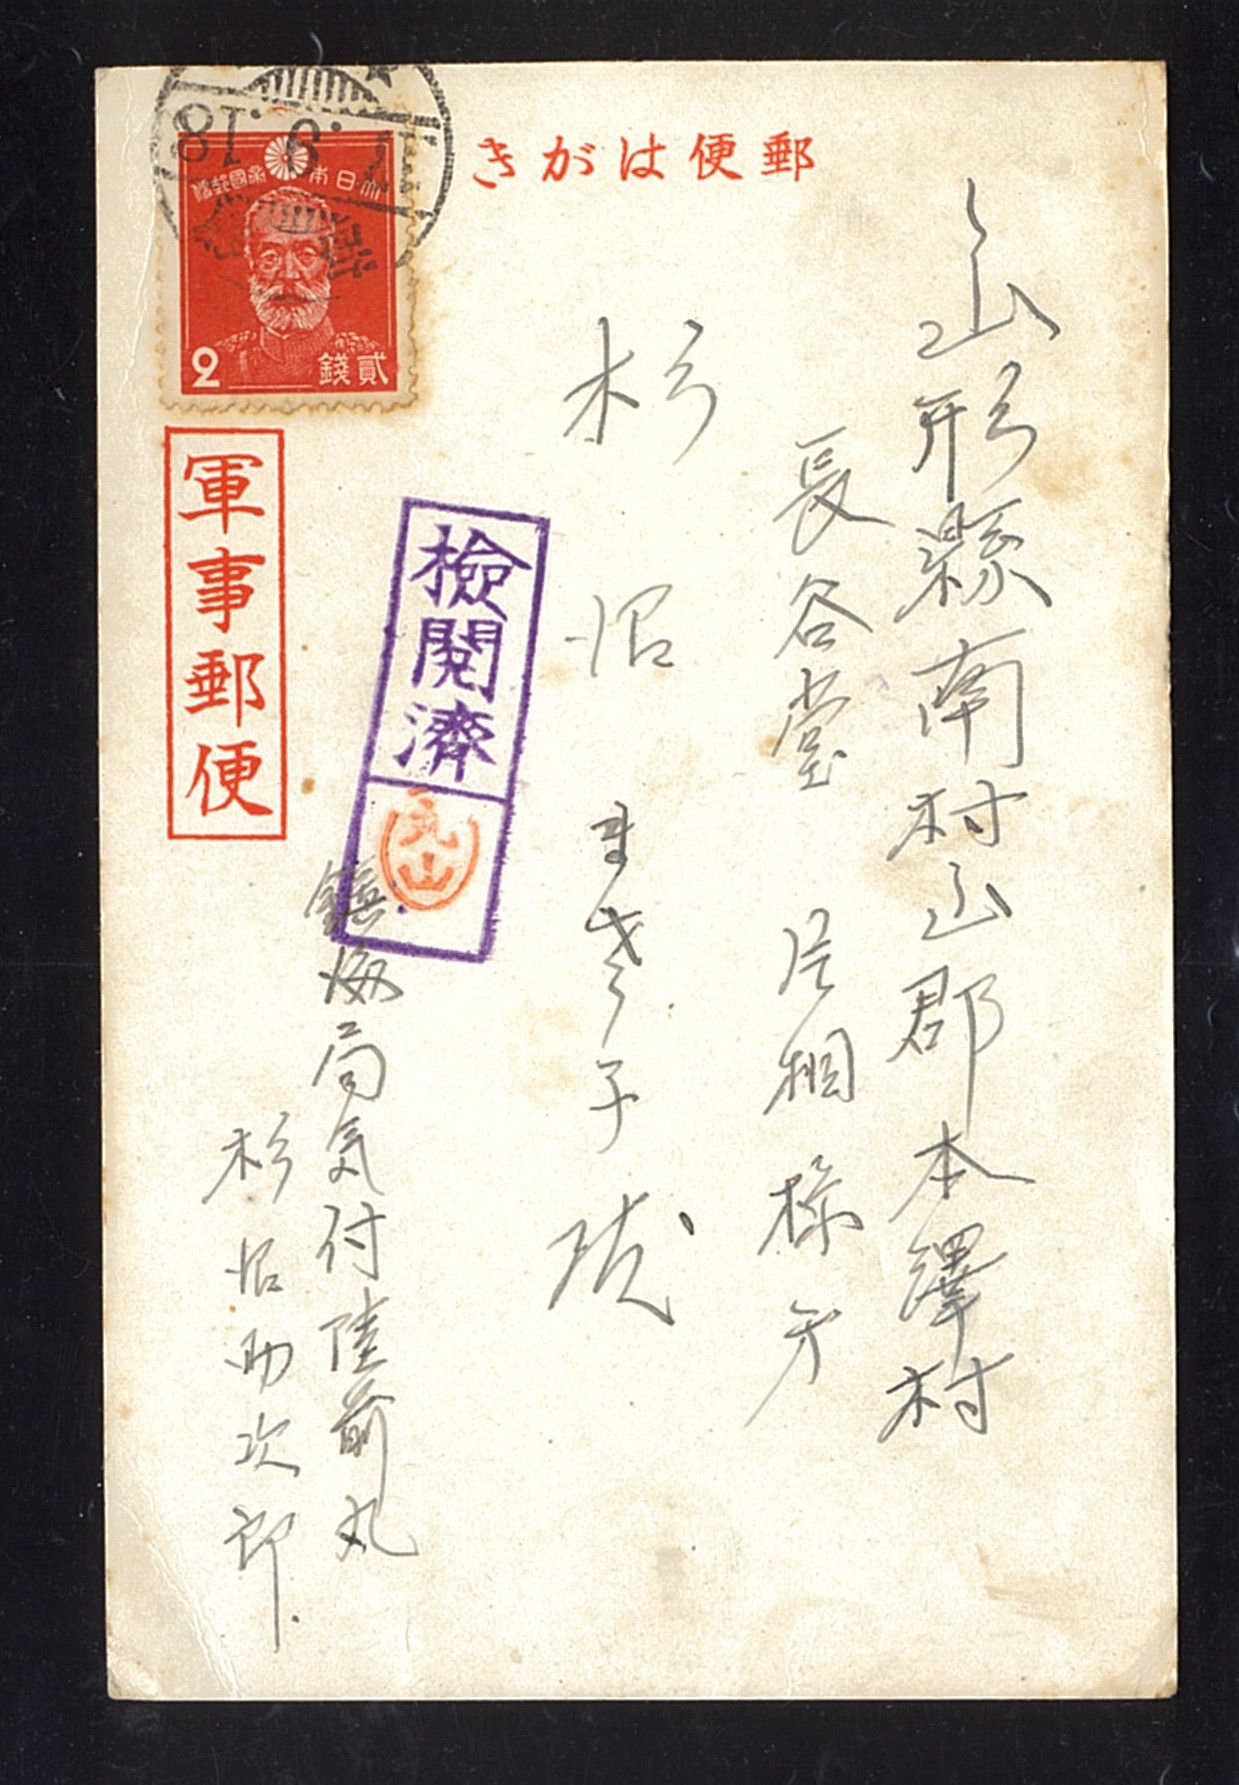 郵便はがき
大日本帝國郵便
2 貳錢
17.9.18
軍事郵便
檢閱濟
丸山
山形縣南村山郡本澤村
長谷堂 片桐様方
杉沼 まき子 殿
鎮海局気付陸前丸
杉沼助次郎